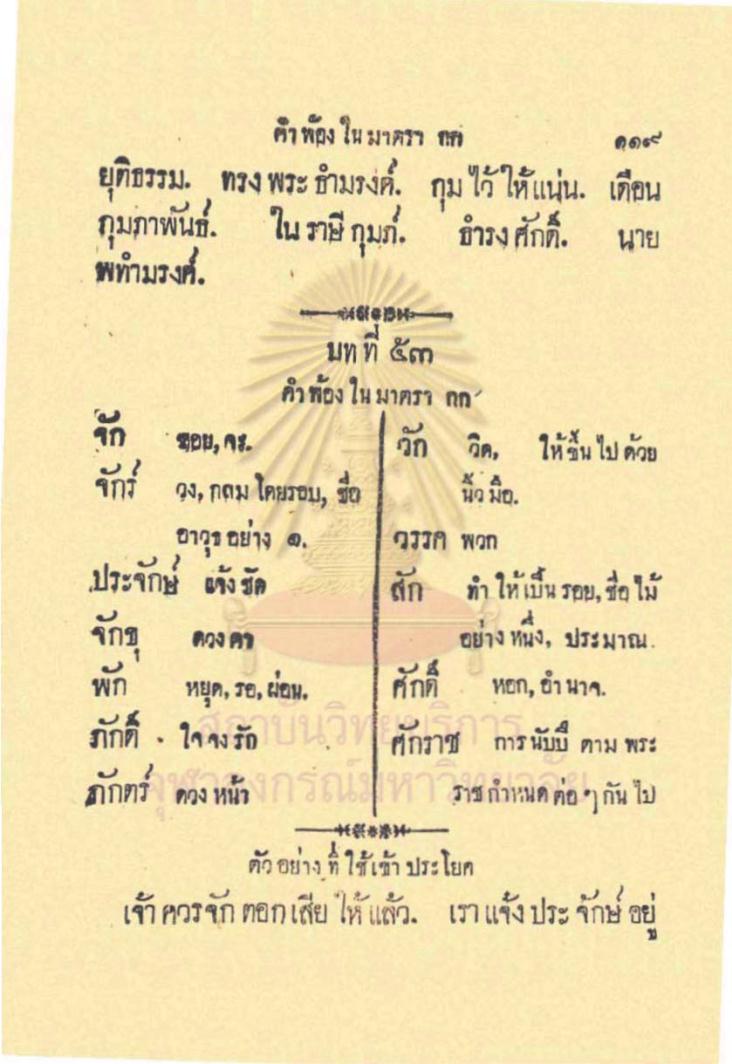 คำพ้อง ในมาตรา กก ๑๑๙
ยุติธรรม. ทรง พระ ธำมรงค์. กุม ไว้ ให้แน่น. เดือน
กุมภาพันธ์. ใน ราษี กุมภ์. ธำรง ศักดิ์. นาย
พทำมรงค์.
บท ที่ ๕๓
คำพ้อง ในมาตรา กก
จัก ซอย, จะ.
จักร์ วง, กลม โดยรอบ, ชื่อ
อาวุธ อย่าง ๑.
ประจักษ์ แจ้งชัด
จักขุ ดวงตา
พัก หยุด, รอ, ผ่อน.
ภักดี์ ใจ จง รัก
ภักตร์ ดวง หน้า
วัก วิด, ให้ขึ้น ไป ด้วย
นิ้วมือ.
วรรค พวก
สัก ทำ ให้เป็น รอย, ชื่อ ไม้
อย่าง หนึ่ง, ประมาณ.
ศักดิ์ หอก, อำนาจ.
ศักราช การ นับปี ตาม พระ
ราช กำหนด ต่อ ๆ กัน ไป
ตัวอย่าง ที่ ใช้เข้า ประโยค
เจ้า ควร จัก ตอก เสีย ให้ แล้ว. เรา แจ้ง ประ จักษ์ อยู่
สถาบันวิทยบริการ
จุฬาลงกรณ์มหาวิทยาลัย